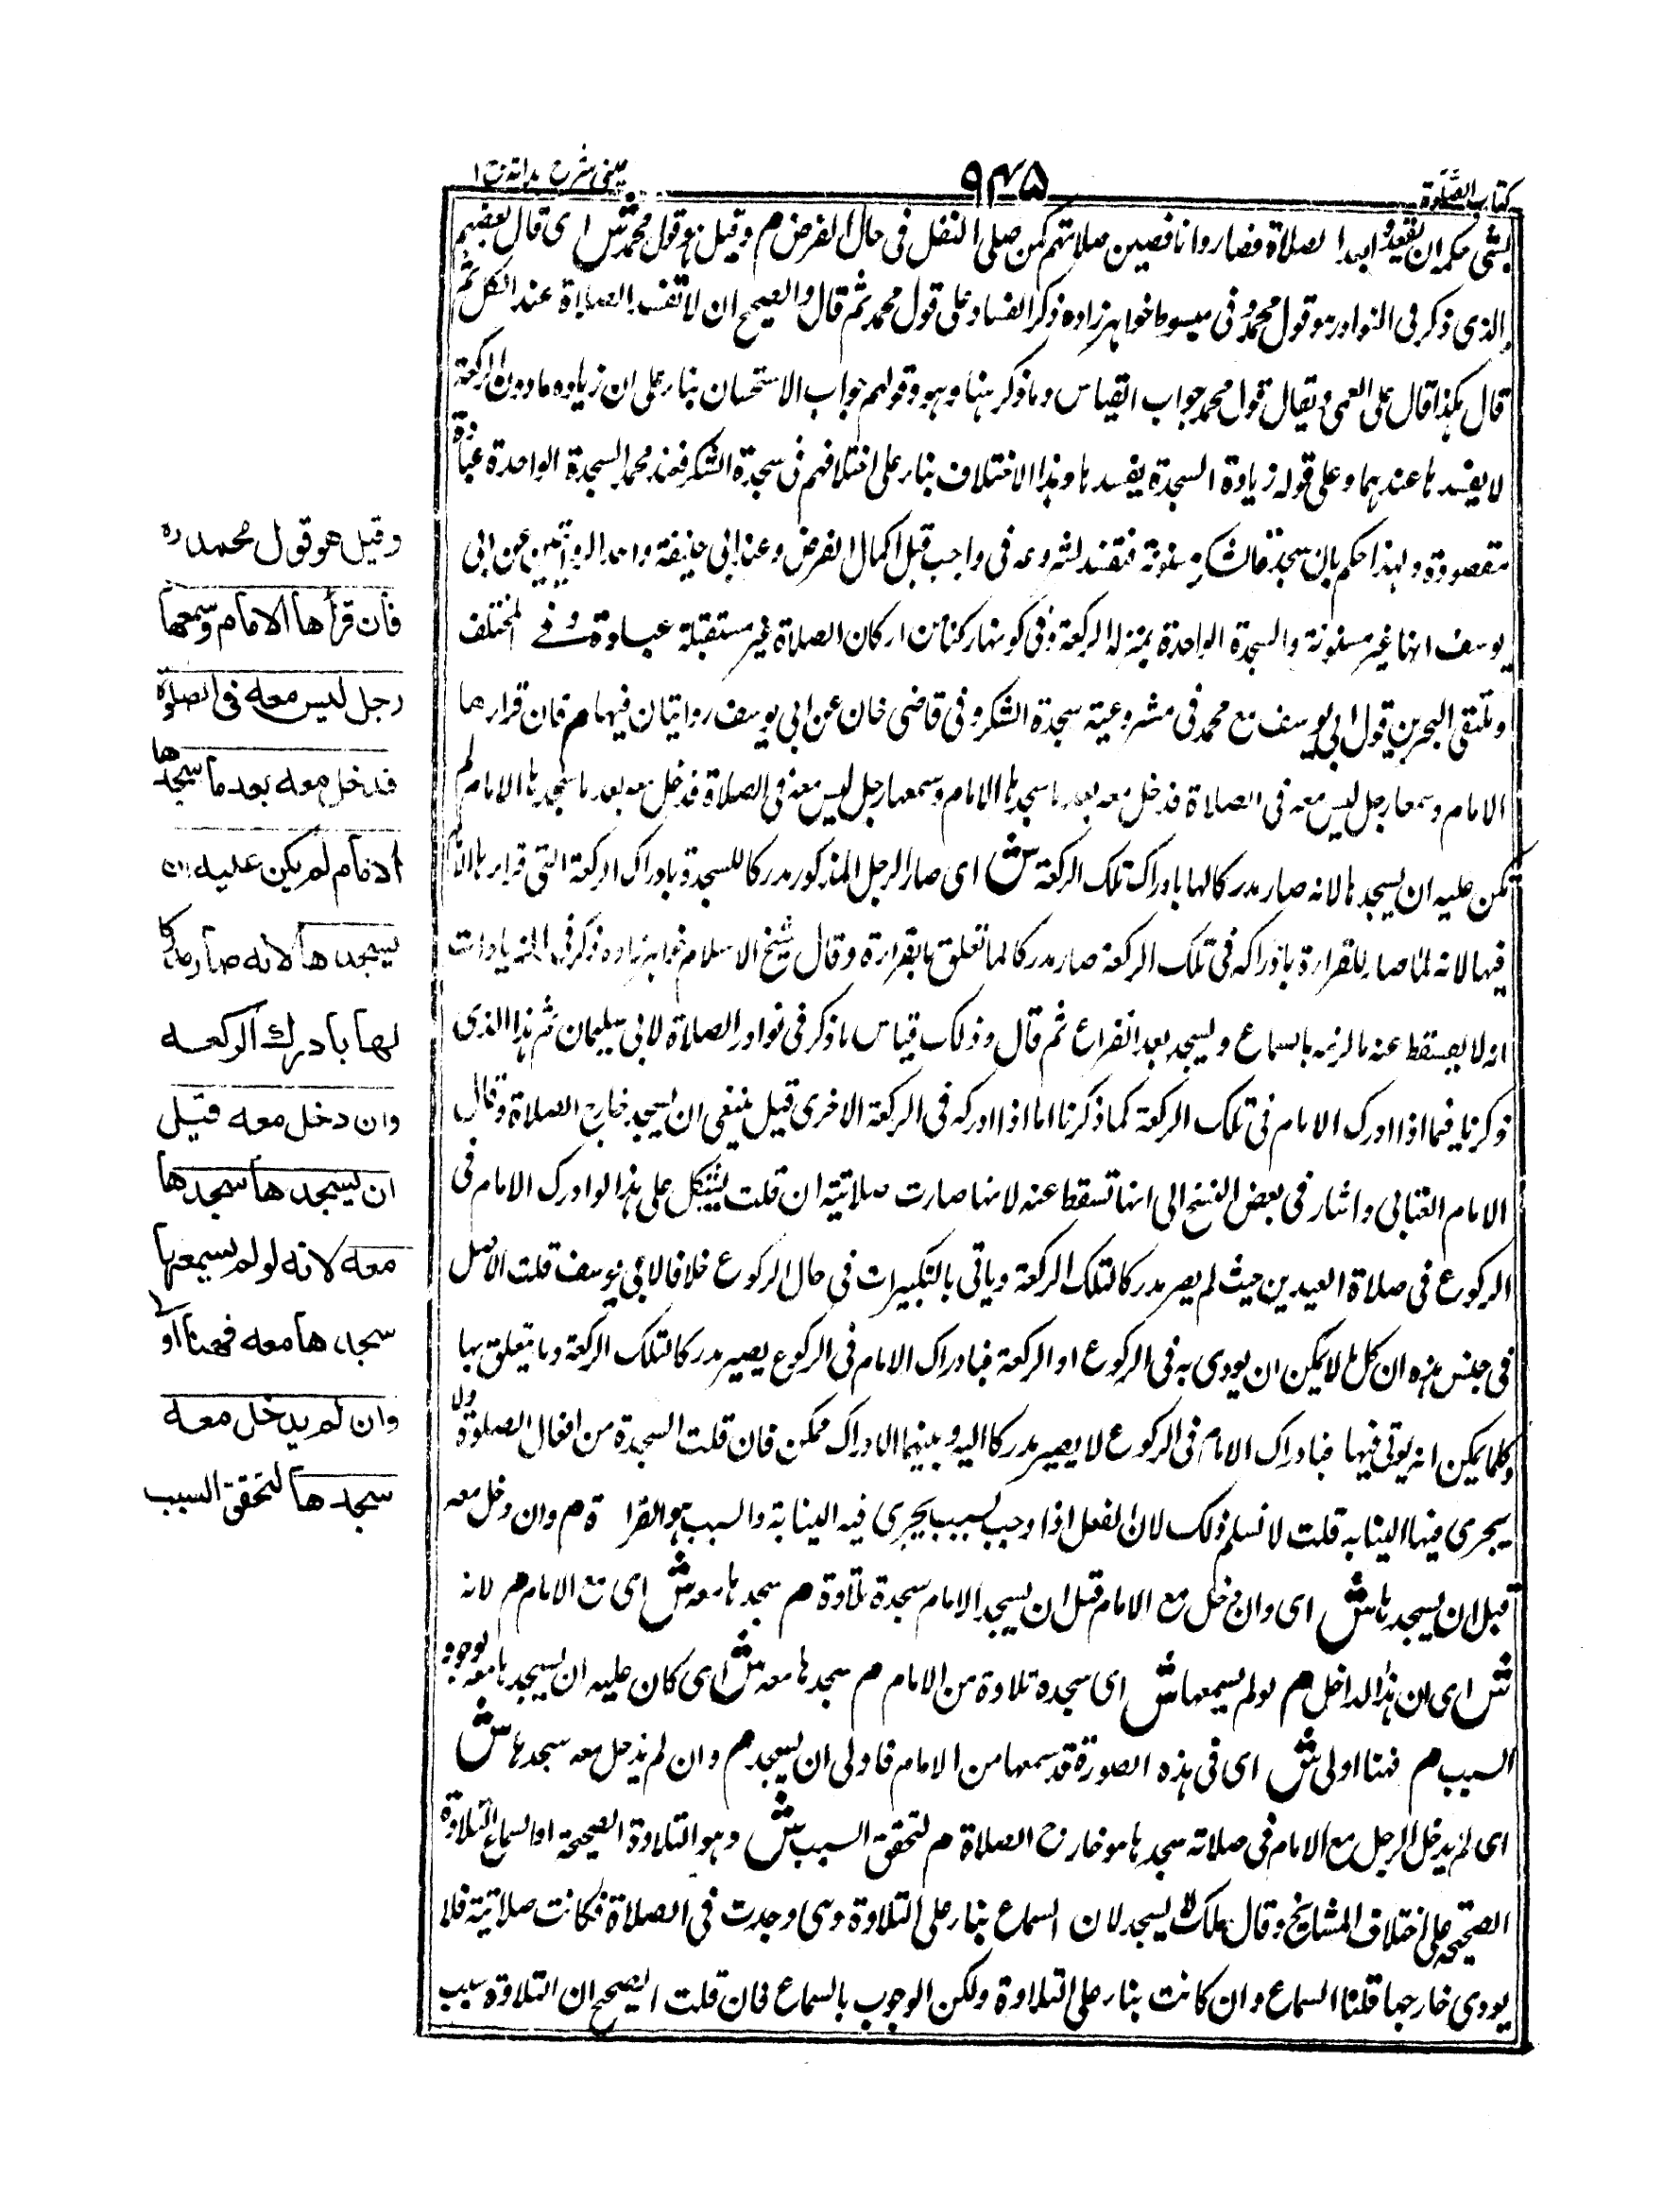 كتاب الصلوة
٩٤٥
عينى شرح هداية ج ١
لشئ حكمه ان يقعد وابدا لصلاة فصاروا ناقصين صلاتهم كمن صلى النفل فى حال الفرض م وقيل هو قول محمد ش اى قال بعضهم
الذى ذكر فى النوادر هو قول محمد وفى مبسوط خواهرزاده ذكر الفساد على قول محمد ثم قال والصحيح ان لا تفسد الصلاة عند الكل ثم
قال هكذا قال على القمى ويقال قول محمد جواب القياس وما ذكر هنا وهو قولهم جواب الاستحسان بناء على ان زياده ما دون الركعة
لا يفسدها عندهما وعلى قوله زيادة السجدة يفسدها وهذا الاختلاف بناء على اختلافهم فى سجدة الشكر فعند محمد السجدة الواحدة عبادة
مقصودة ولهذا حكم بان سجدة الشكر مسنونة فتفسد لشروعه فى واجب قبل اكمال الفرض وعند ابى حنيفة واحدى الروايتين عن ابى
يوسف انها غير مسنونة والسجدة الواحدة بمنزلة الركعة فى كونها ركنا من اركان الصلاة غير مستقبلة عبادة وفى المختلف
وملتقى البحرين قول ابى يوسف مع محمد فى مشروعية سجدة الشكر وفى قاضى خان عن ابى يوسف روايتان فيها م فان قراءها
الامام وسمعها رجل ليس معه فى الصلاة فدخل معه بعد ما سجدها الامام وسمعها رجل ليس معه فى الصلاة فدخل معه بعد ما سجدها الامام لم
يكن عليه ان يسجدها لانه صار مدركا لها بادراك تلك الركعة ش اى صار الرجل المذكور مدركا للسجدة بادراك الركعة التى قراءها الامام
فيها لانه لما صار للقراءة بادراكه فى تلك الركعة صار مدركا لما تعلق بالقراءة وقال شيخ الاسلام خواهرزاده ذكر فى الزيادات
انه لا يسقط عنه ما لزمه بالسماع ويسجد بعد الفراغ ثم قال وذلك قياس ما ذكر فى نوادر الصلاة لابى سليمان ثم هذا الذى
ذكرنا فيما اذا ادرك الامام فى تلك الركعة كما ذكرنا اما اذا ادركه فى الركعة الاخرى قيل ينبغى ان يسجد خارج الصلاة وقال
الامام العتابى واشار فى بعض النسخ الى انها تسقط عنه لانها صارت صلاتية ان قلت يشكل على هذا لو ادرك الامام فى
الركوع فى صلاة العيدين حيث لم يصر مدركا لتلك الركعة وياتى بالتكبيرات فى حال الركوع خلافا لابى يوسف قلت الاصل
فى جنس هذه ان كل ما لا يمكن ان يودى به فى الركوع او الركعة فبادراك الامام فى الركوع يصير مدركا لتلك الركعة وما يتعلق بها
وكلما يمكن انه يوتى فيها فبادراك الامام فى الركوع لا يصير مدركا اليه وبينهما الادراك ممكن فان قلت السجدة من افعال الصلوة ولا
يجرى فيها النيابه قلت لا نسلم ذلك لان الفعل اذا وجب بسبب يجرى فيه النيابة والسبب هو القراءة م وان دخل معه
قبل ان يسجدها ش اى وان دخل مع الامام قبل ان يسجد الامام سجدة تلاوة م سجدها معه ش اى مع الامام م لانه
ش اى ان هذا الداخل م لو لم يسمعها ش اى سجده تلاوة من الامام م سجدها معه ش اى كان عليه ان يسجدها معه لوجود
السبب م فهنا اولى ش اى فى هذه الصورة قد سمعها من الامام فاولى ان يسجد م وان لم يدخل معه سجدها ش
اى لم يدخل الرجل مع الامام فى صلاته سجدها هو خارج الصلاة م لتحقق السبب ش وهو التلاوة الصحيحة او السماع التلاوة
الصحيحة على اختلاف المشايخ وقال مالك لا يسجد لان السماع بناء على التلاوة وهى وجدت فى الصلاة فكانت صلاتية فلا
يودى خارجها قلنا السماع وان كانت بناء على التلاوة ولكن الوجوب بالسماع فان قلت الصحيح ان التلاوة سبب
وقيل هو قول محمد ره
فان قرأها الامام وسمعها
رجل ليس معه فى الصلوة
فدخل معه بعد ما سجدها
الامام لم يكن عليه ان
يسجدها لانه صار مدركا
لها بادراك الركعه
وان دخل معه قبل
ان يسجدها سجدها
معه لانه لو لم يسمعها
سجدها معه فههنا اولى
وان لم يدخل معه
سجدها لتحقق السبب